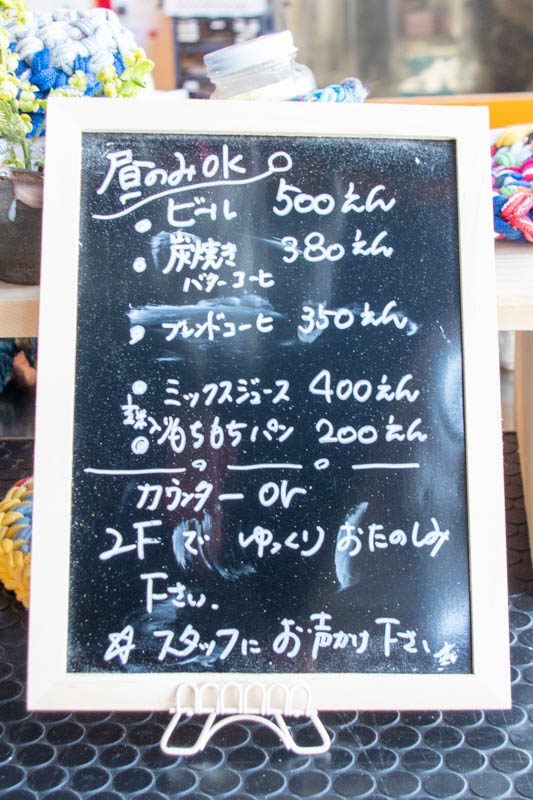 昼のみOK
・ビール 500えん
・炭焼き 380えん
バターコーヒ
・ブレンドコーヒ 350えん
・ミックスジュース 400えん
・もちもちパン 200えん
カウンター or
2Fで ゆっくり おたのしみ
下さい.
☆スタッフに お声かけ下さい